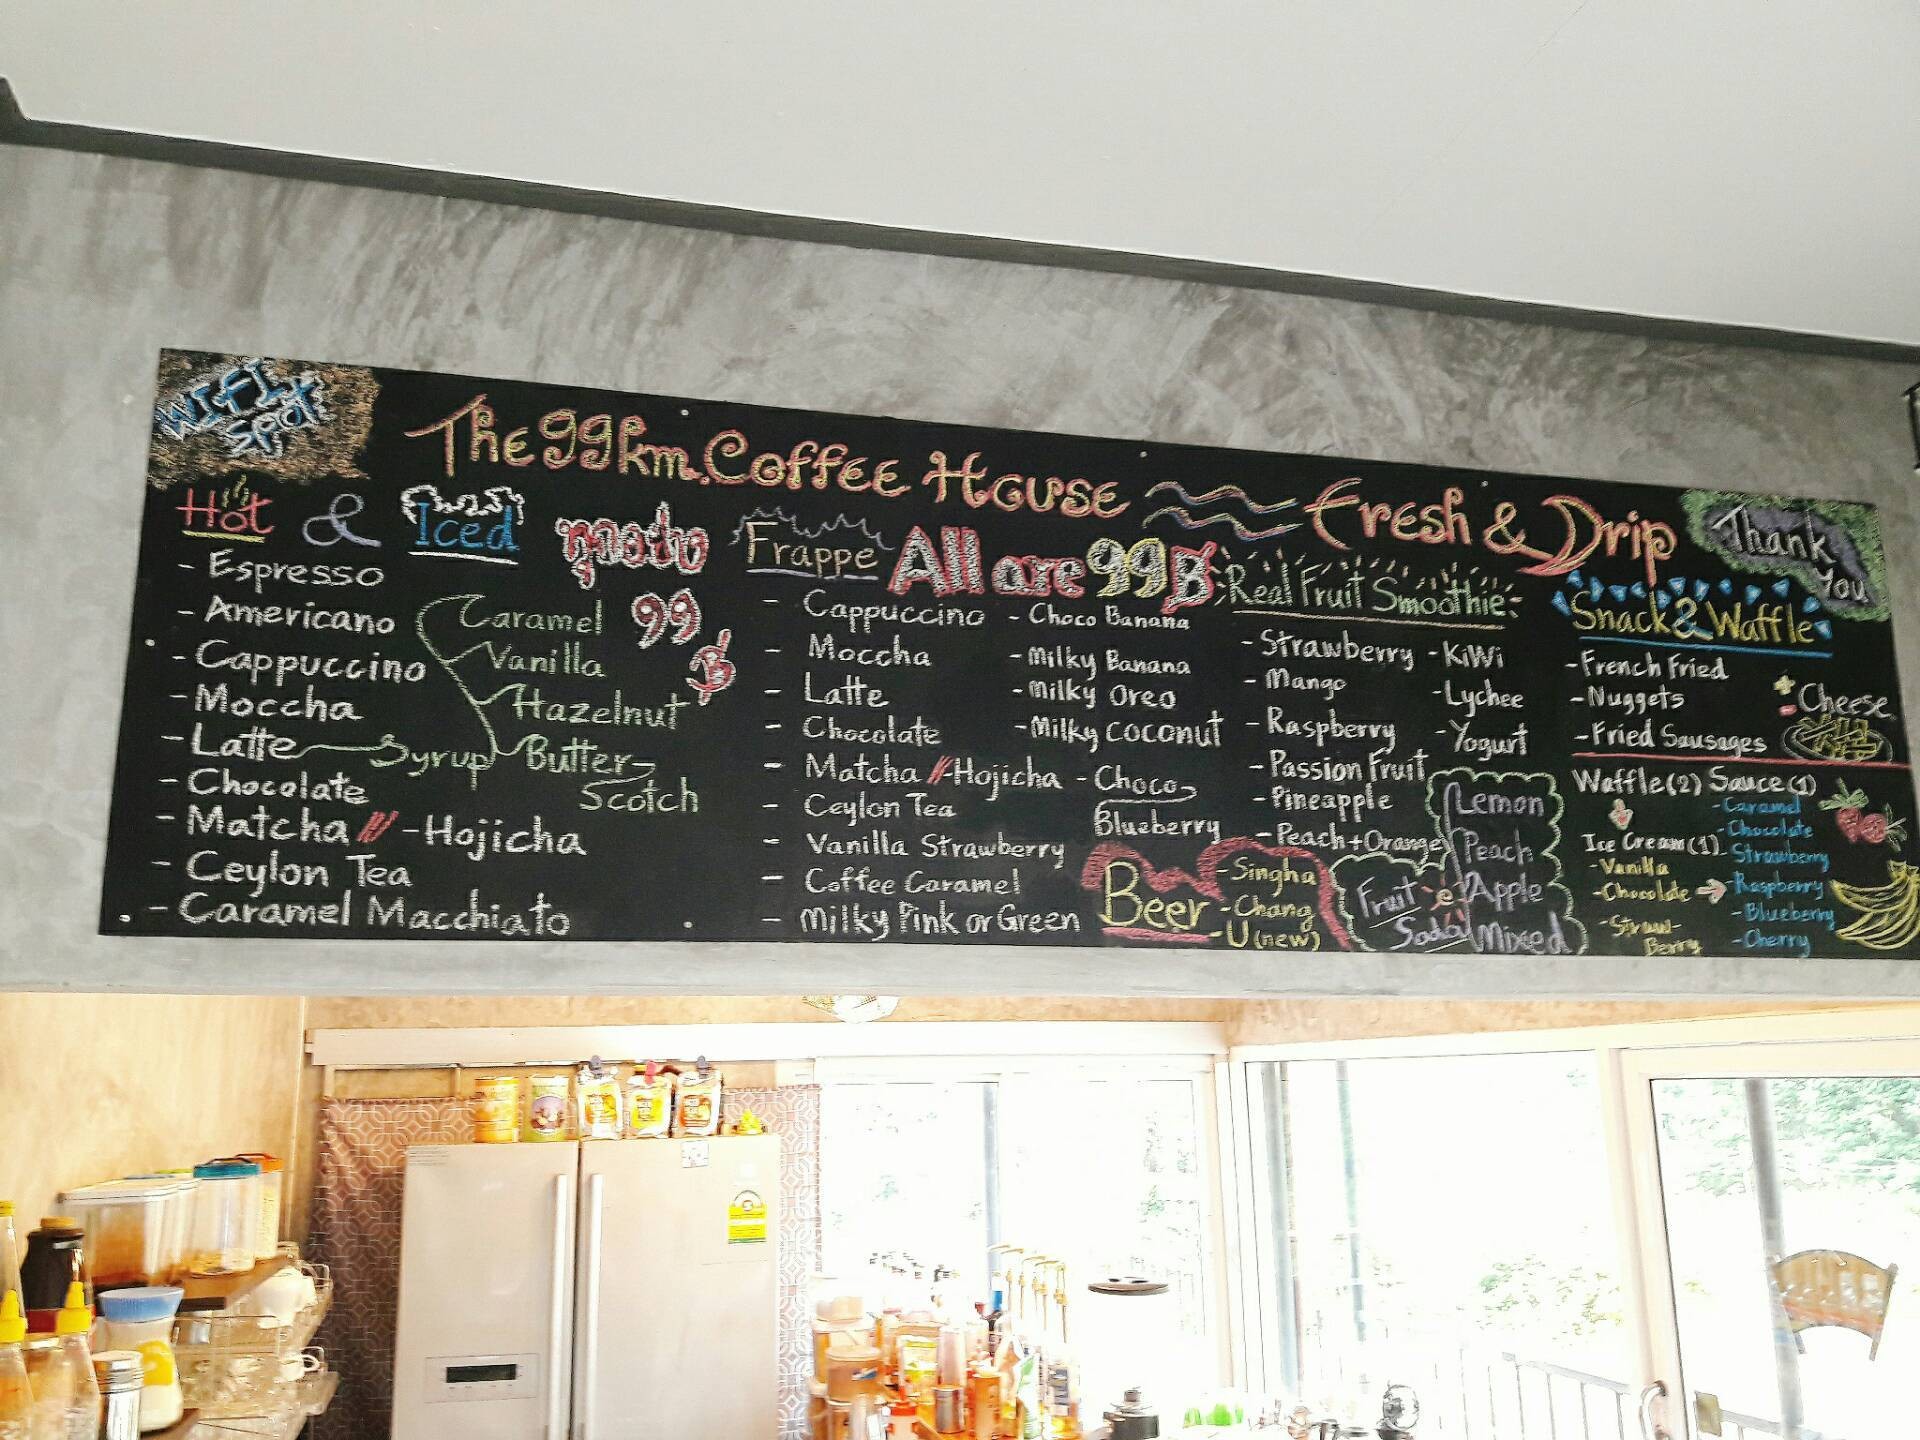 WIFI
Spot
The 99 km. Coffee House Fresh & Drip
Thank
You
Hot & Iced
99
฿
- Espresso
- Americano
- Cappuccino
- Moccha
- Latte
- Chocolate
- Matcha /// - Hojicha
- Ceylon Tea
- Caramel Macchiato
Syrup
Caramel
Vanilla
Hazelnut
Butter-
Scotch
Frappe All are 99฿
- Cappuccino
- Moccha
- Latte
- Chocolate
- Matcha // - Hojicha
- Ceylon Tea
- Vanilla Strawberry
- Coffee Caramel
- Milky Pink or Green
- Choco Banana
- Milky Banana
- Milky Oreo
- Milky COCONUT
- Choco
Blueberry
Beer
- Singha
- Chang
- U (new)
Real Fruit Smoothie
- Strawberry
- Mango
- Raspberry
- Passion Fruit
- Pineapple
- Peach + Orange
- KiWi
- Lychee
- Yogurt
Fruit
Soda
Lemon
Peach
Apple
Mixed
Snack & Waffle
- French Fried
- Nuggets
- Fried Sausages
+ Cheese
Waffle (2) Sauce (1)
Ice Cream (1)
- Vanilla
- Chocolate
- Straw-
Berry
- Caramel
- Chocolate
- Strawberry
- Raspberry
- Blueberry
- Cherry